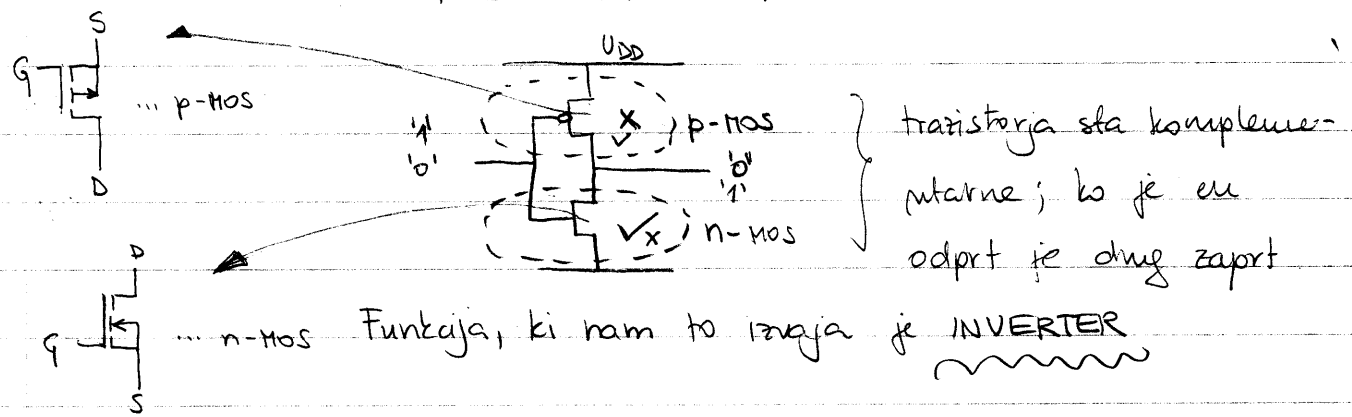 S
G
... p-MOS
D
UDD
'1'
'0'
p-MOS
'0'
'1'
n-MOS
trazistorja sta kompleme-
ntarne; ko je en
odprt je drug zaprt
D
G
... n-MOS Funkcija, ki nam to izvaja je INVERTER
S